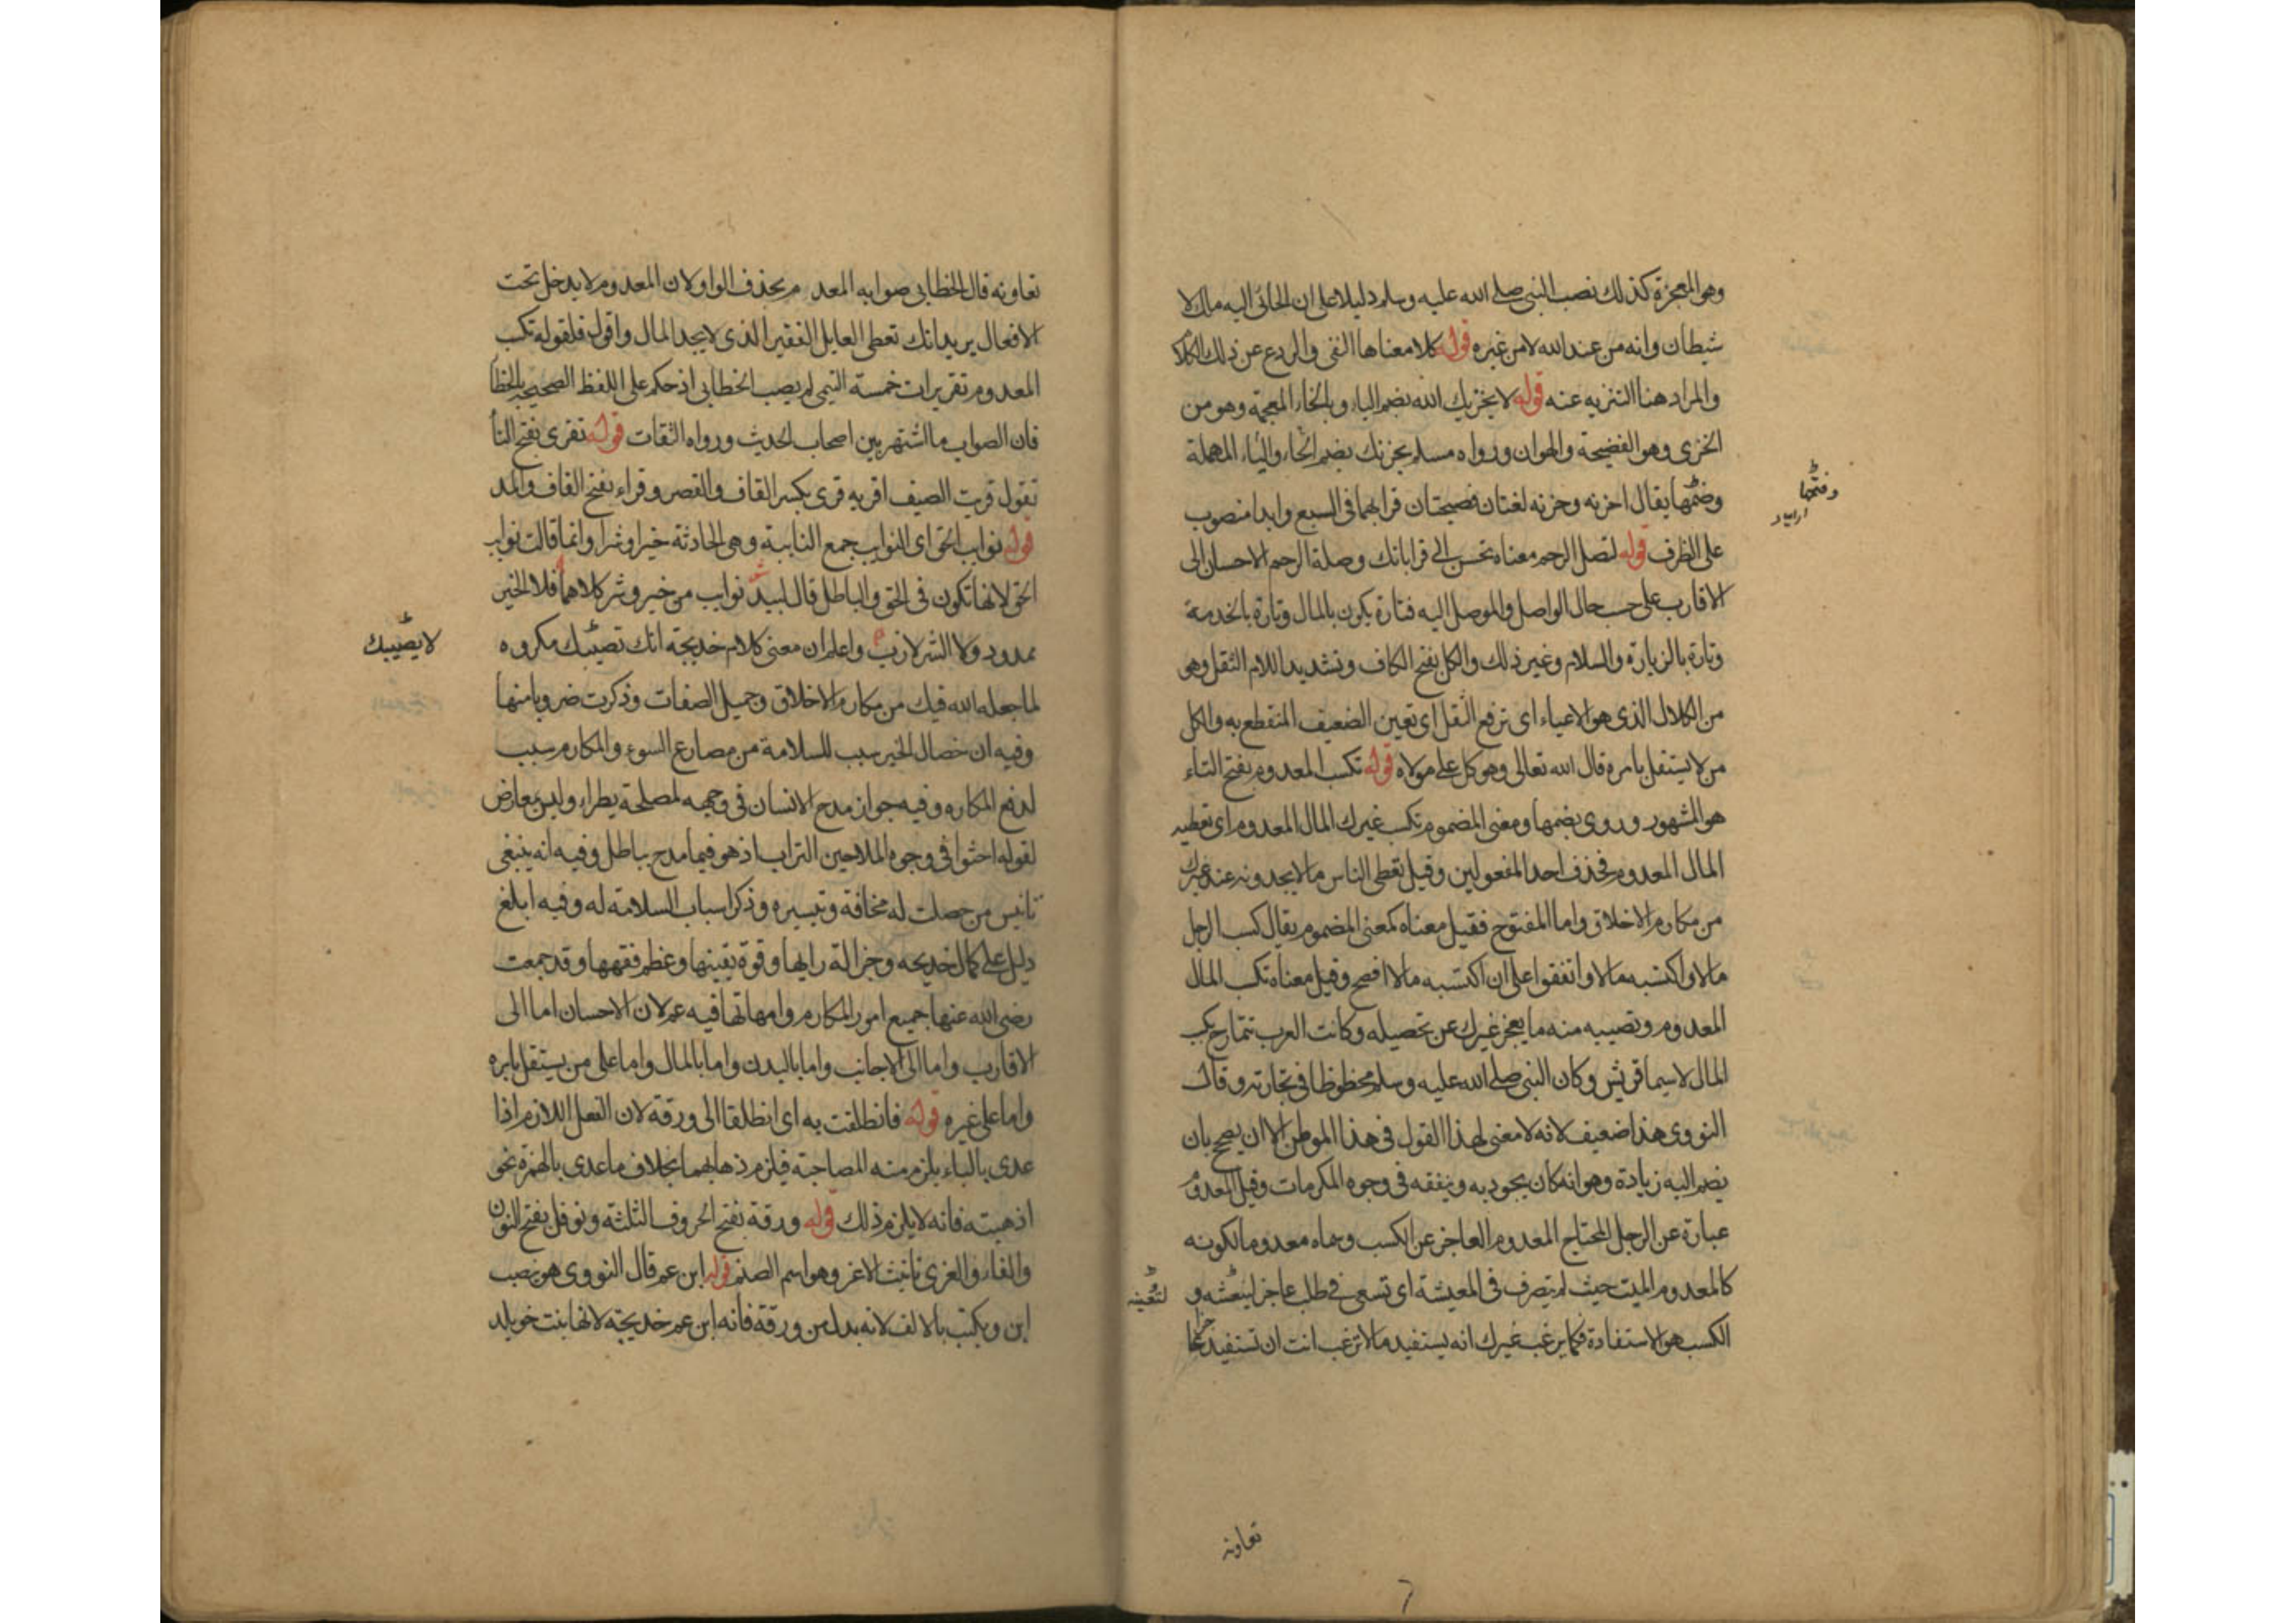 وهى المعجزة كذلك نصب النبى صلى الله عليه وسلم دليلا على ان الجائى اليه ملك لا
شيطان وانه من عند الله لا من غيره قوله كلا معناها النفى والردع عن ذلك الكلام
والمراد هنا التنزيه عنه قوله لا يخزيك الله بضم الياء وبالخاء المعجمة وهو من
الخزى وهو الفضيحة والهوان ورواه مسلم يحزنك بضم الحاء والياء المهملة
وضمها يقال احزنه وحزنه لغتان فصيحتان قرا بهما فى السبع وابدا منصوب
وفتحها
على الظرف قوله لتصل الرحم معناه تحسن الى قراباتك وصلة الرحم الاحسان الى
الاقارب على حسب حال الواصل والموصل اليه فتارة يكون بالمال وتارة بالخدمة
وتارة بالزيارة والسلام وغير ذلك والكل بفتح الكاف وتشديد اللام الثقل وهى
من الكلال الذى هو الاعياء اى ترفع الثقل اى تعين الضعيف المنقطع به والكل
من لا يستقل بامره قال الله تعالى وهو كل على مولاه قوله تكسب المعدوم بفتح التاء
هو المشهور وروى بضمها ومعنى المضموم تكسب غيرك المال المعدوم اى تعطيه
المال المعدوم فحذف احد المفعولين وقيل تعطى الناس ما لا يجدونه عند غيرك
من مكارم الاخلاق واما المفتوح فقيل معناه كمعنى المضموم يقال كسب الرجل
مالا واكتسبه مالا واتفقوا على ان اكتسبه مالا افصح وقيل معناه تكسب المال
المعدوم وتصيب منه ما يعجز غيرك عن تحصيله وكانت العرب تتمادح بكسب
المال لا سيما قريش وكان النبى صلى الله عليه وسلم محظوظا فى تجارته وقال
النووى هذا ضعيف لانه لا معنى لهذا القول فى هذا الموطن الا ان يصح بان
يضم اليه زيادة وهو انه كان يجود به وينفقه فى وجوه المكرمات وقيل المعدوم
عبارة عن الرجل المحتاج المعدوم العاجز عن الكسب وسماه معدوما لكونه
كالمعدوم الميت حيث لم يتصرف فى المعيشة اى تسعى فى طلب عاجز لينعشه و
لتعينه
الكسب هو الاستفادة فكما يرغب غيرك انه يستفيد مالا ترغب انت ان تستفيد عاجزا
تعاونه
تعاونه قال الخطابى صوابه المعدم بحذف الواو لان المعدوم لا يدخل تحت
الافعال يريد انك تعطى العايل الفقير الذى لا يجد المال واقول فلقوله تكسب
المعدوم تقريرات خمسة التيمى لم يصب الخطابى اذ حكم على اللفظ الصحيح بالخطأ
فان الصواب ما اشتهر بين اصحاب الحديث ورواه الثقات قوله تقرى بفتح التا
تقول قريت الضيف اقريه قرى بكسر القاف والقصر وقراء بفتح القاف والمد
قوله نوايب الحق اى النوايب جمع النايبة وهى الحادثة خيرا وشرا وانما قالت نوايب
الحق لانها تكون فى الحق والباطل قال لبيد نوايب من خير وشر كلاهما فلا الخير
ممدود ولا الشر لازب واعلم ان معنى كلام خديجة انك تصيبك مكروه
لا يصيبك
لما جعله الله فيك من مكارم الاخلاق وجميل الصفات وذكرت ضروبا منها
وفيه ان خصال الخير سبب للسلامة من مصارع السوء والمكارم سبب
لدفع المكاره وفيه جواز مدح الانسان فى وجهه لمصلحة يطراء وليس بمعارض
لقوله احثوا فى وجوه المداحين التراب اذ هو فيما مدح بباطل وفيه انه ينبغى
تانيس من حصلت له مخافة وتبسيره وذكر اسباب السلامة له وفيه ابلغ
دليل على كمال خديجه وجزالة رايها وقوة يقينها وعظم فقهها وقد جمعت
رضى الله عنها جميع امور المكارم وامهاتها فيه عم لان الاحسان اما الى
الاقارب واما الى الاجانب واما بالبدن واما بالمال واما على من يستقل بامره
واما على غيره قوله فانطلقت به اى انطلقا الى ورقة لان الفعل اللازم اذا
عدى بالباء يلزم منه المصاحبة فيلزم ذهابهما بخلاف ما عدى بالهمزة نحو
اذهبته فانه لا يلزم ذلك قوله ورقة بفتح الحروف الثلثة ونوفل بفتح النون
والفاء والعزى تانيث الاعز وهو اسم الصنم قوله ابن عم قال النووى هو بنصب
ابن ويكتب بالالف لانه بدل من ورقة فانه ابن عم خديجة لانها بنت خويلد